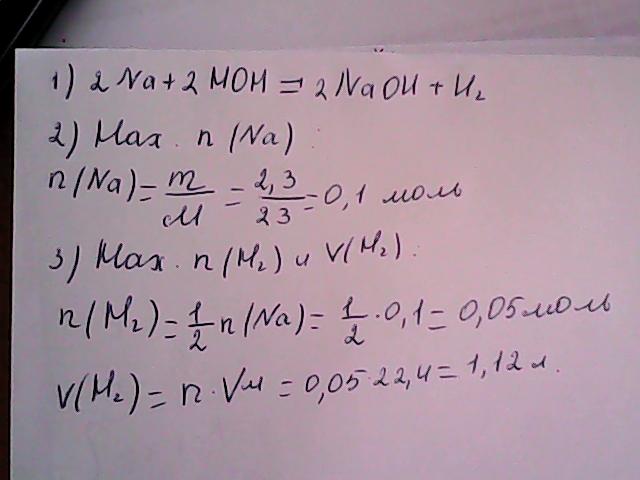 1) 2Na + 2HOH = 2NaOH + H₂
2) Нах. n (Na) :
n(Na) = m/M = 2,3/23 = 0,1 моль
3) Нах. n (H₂) и V(H₂) :
n(H₂) = 1/2 n(Na) = 1/2 · 0,1 = 0,05 моль
V(H₂) = n · Vм = 0,05 · 22,4 = 1,12 л.